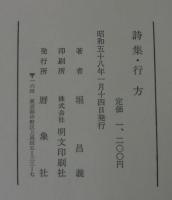 詩集・行方
定価 一、二〇〇円
昭和五十八年一月十四日発行
著者 堀昌義
印刷所 株式会社 明文印刷社
発行所 暦象社